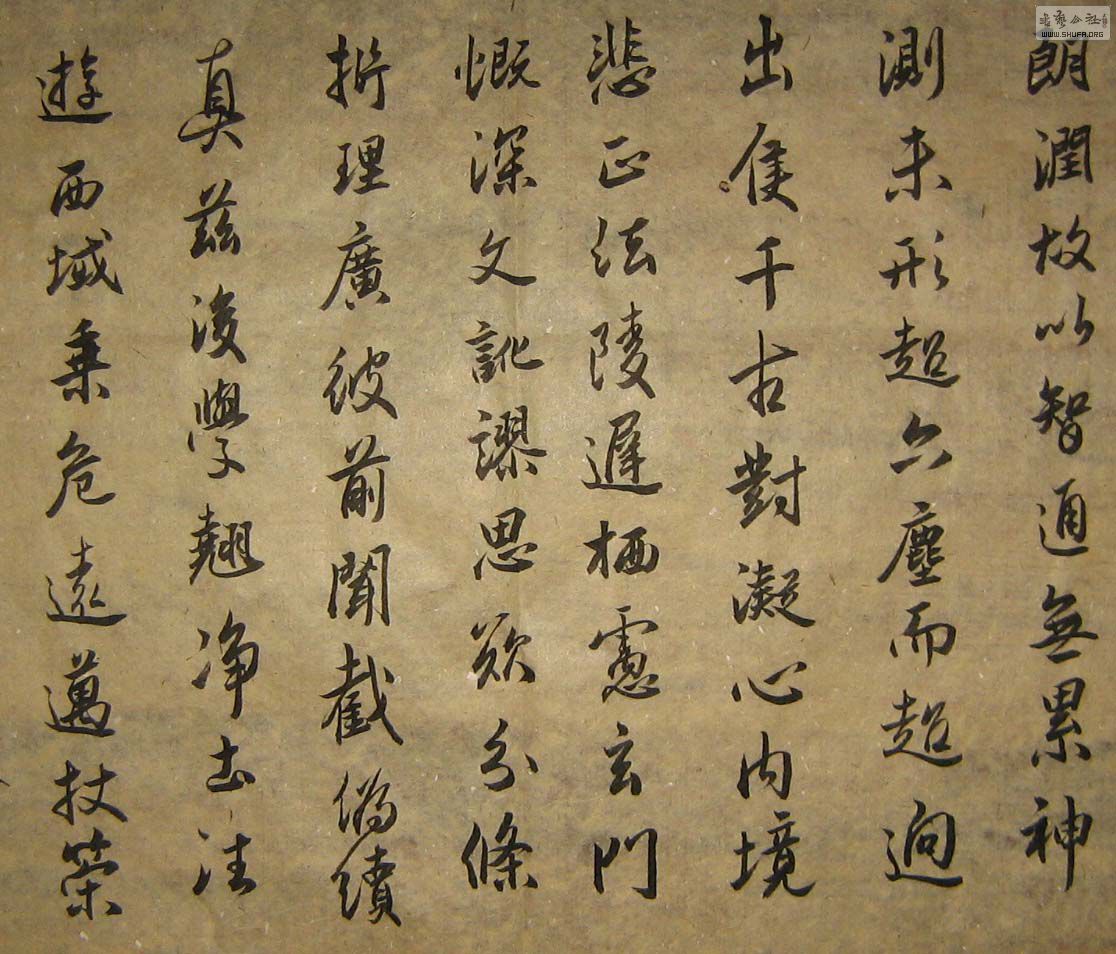 朗潤故以智通無累神
測未形超六塵而超迥
出隻千古對凝心內境
悲正法陵遲栖慮玄門
慨深文訛謬思欲分條
析理廣彼前聞截偽續
真茲後學翹净土往
遊西域乗危遠邁杖策
書藝公社
WWW.SHUFA.ORG